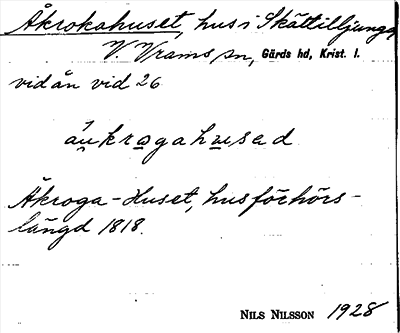 Åkrokahuset, hus i Skättilljunga,
V. Vrams sn, Gärds hd, Krist. l.
vid ån vid 26
áu̯krogahused
Åkroga-Huset, husförhörs-
längd 1818.
NILS NILSSON 1928